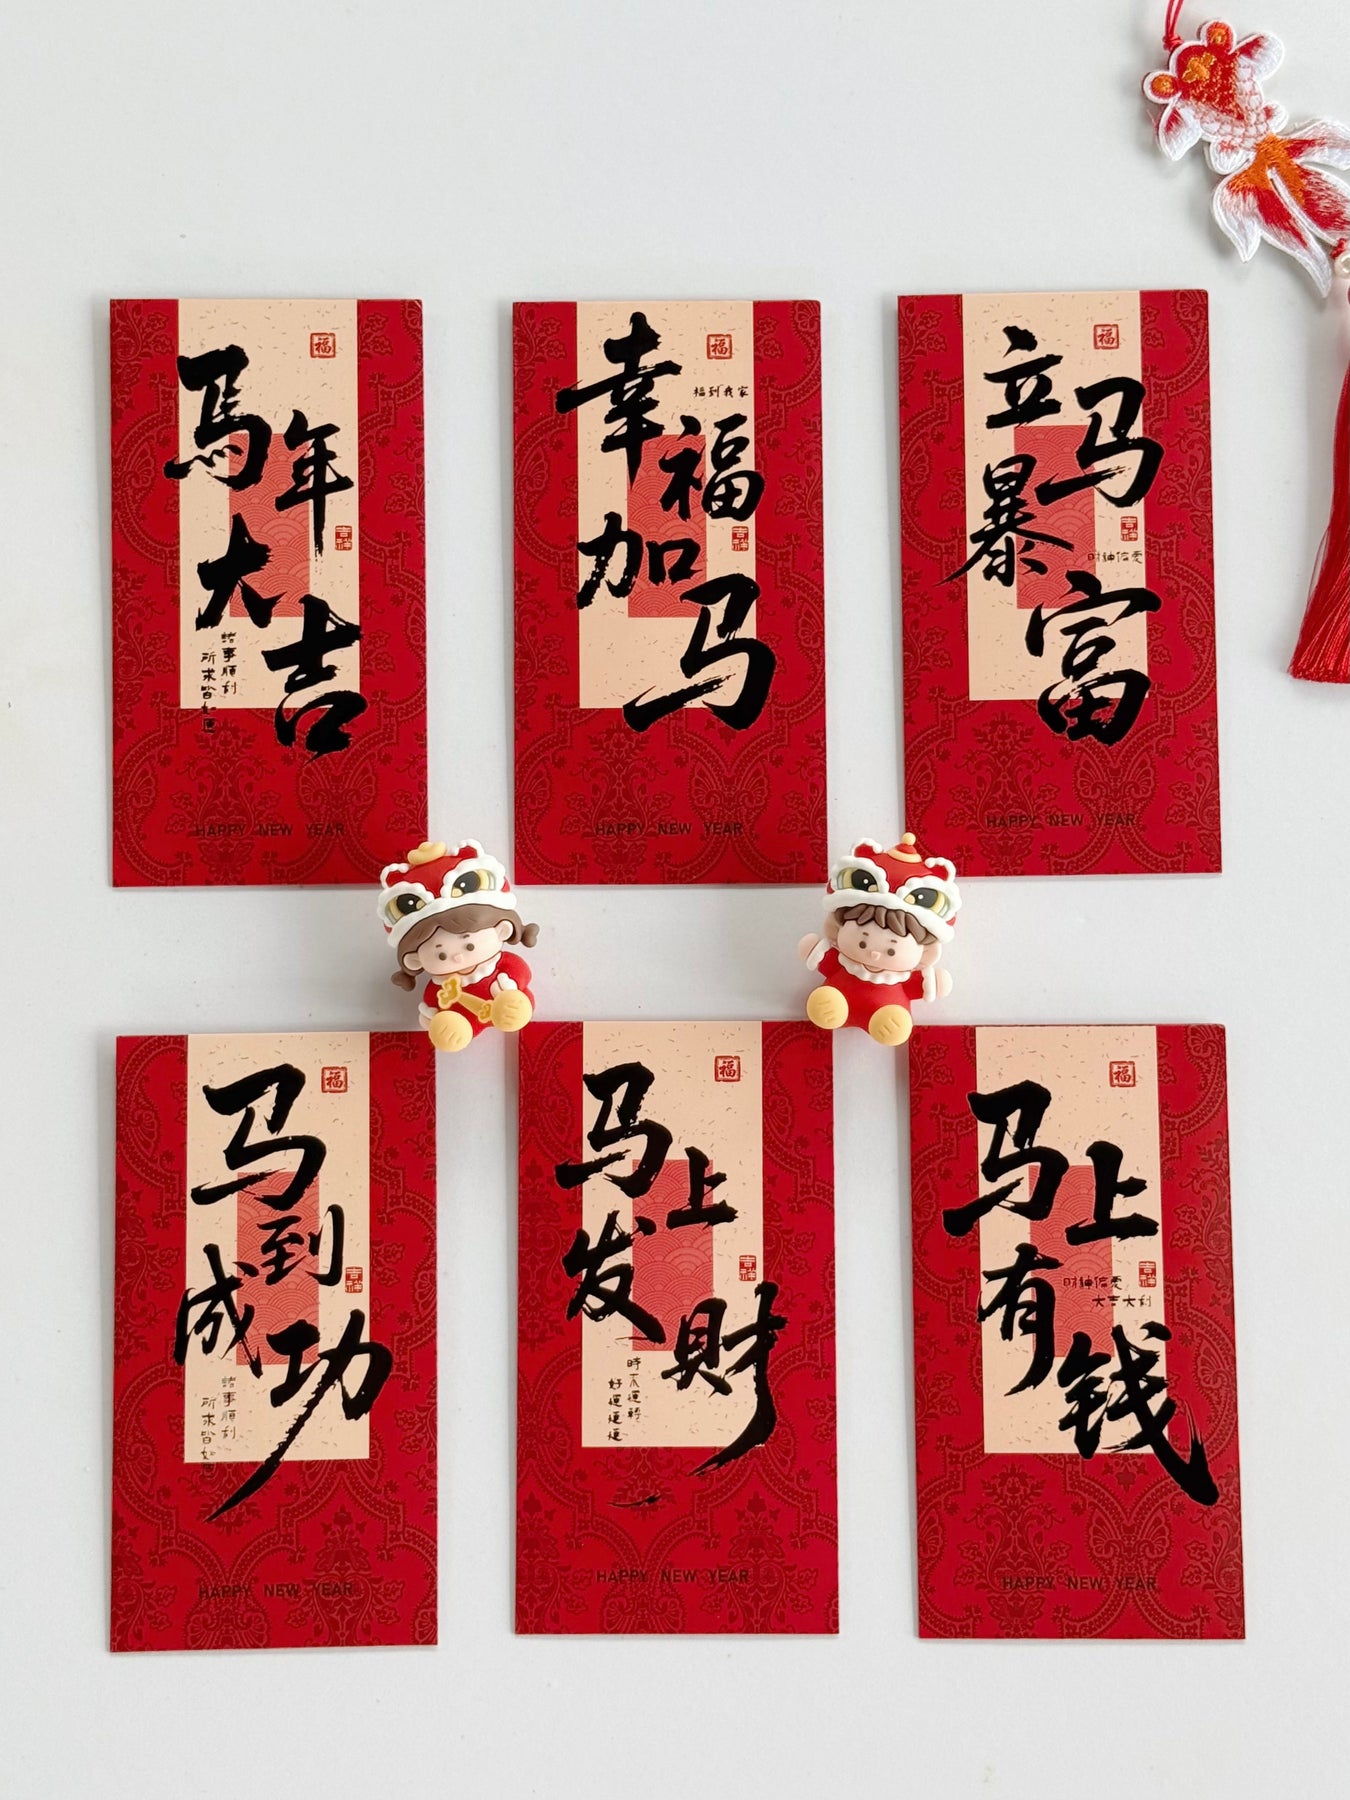 福
馬年
大吉
吉祥
諸事順利
所求皆如愿
HAPPY NEW YEAR
福
福到我家
幸福
加马
吉祥
HAPPY NEW YEAR
福
立马
暴富
吉祥
财神偏爱
HAPPY NEW YEAR
福
马到
成功
吉祥
諸事順利
所求皆如愿
HAPPY NEW YEAR
福
马上
发財
吉祥
時来運轉
好運連連
HAPPY NEW YEAR
福
马上
有钱
吉祥
财神偏爱
大吉大利
HAPPY NEW YEAR